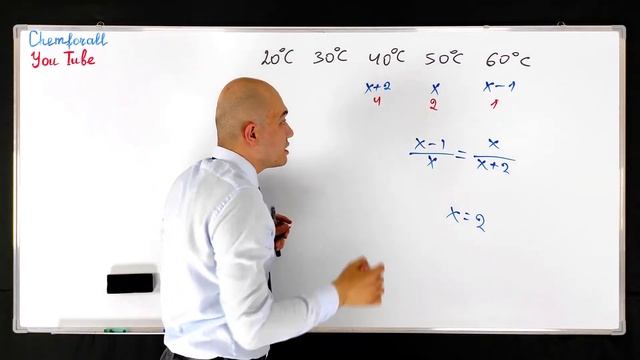 Chemforall
You Tube
20°C 30°C 40°C 50°C 60°C
x+2 x x-1
4 2 1
x-1 / x = x / x+2
x=2